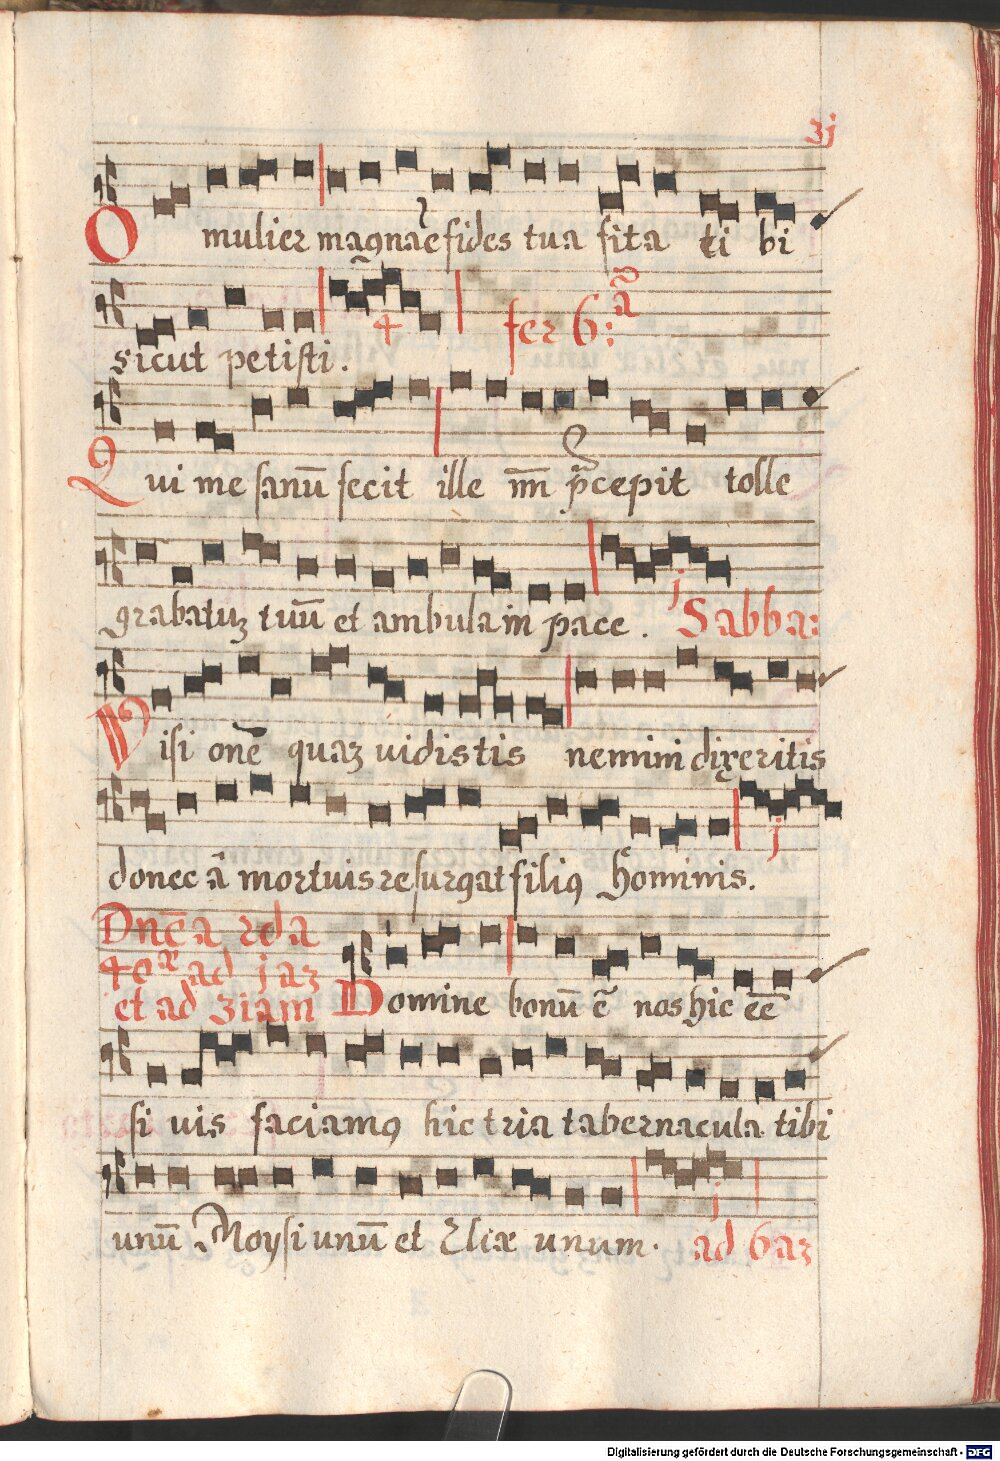 3j
O mulier magnae fides tua fita ti bi
sicut petisti.
4
fer 6:a
Qui me sanū fecit ille m̄ p̄cepit tolle
grabatuʒ tuū et ambula in pace.
j
Sabba:
Visi onē quaʒ uidistis nemini dixeritis
donec ā mortuis resurgat filiꝯ hominis.
j
Dn̄ca 2da
40ae ad jaʒ
et ad 3iam
Domine bonū ē nos hic eē
si uis faciamꝯ hic tria tabernacula tibi
unū Moysi unū et Eliæ unum.
j
ad 6aʒ
Digitalisierung gefördert durch die Deutsche Forschungsgemeinschaft - DFG